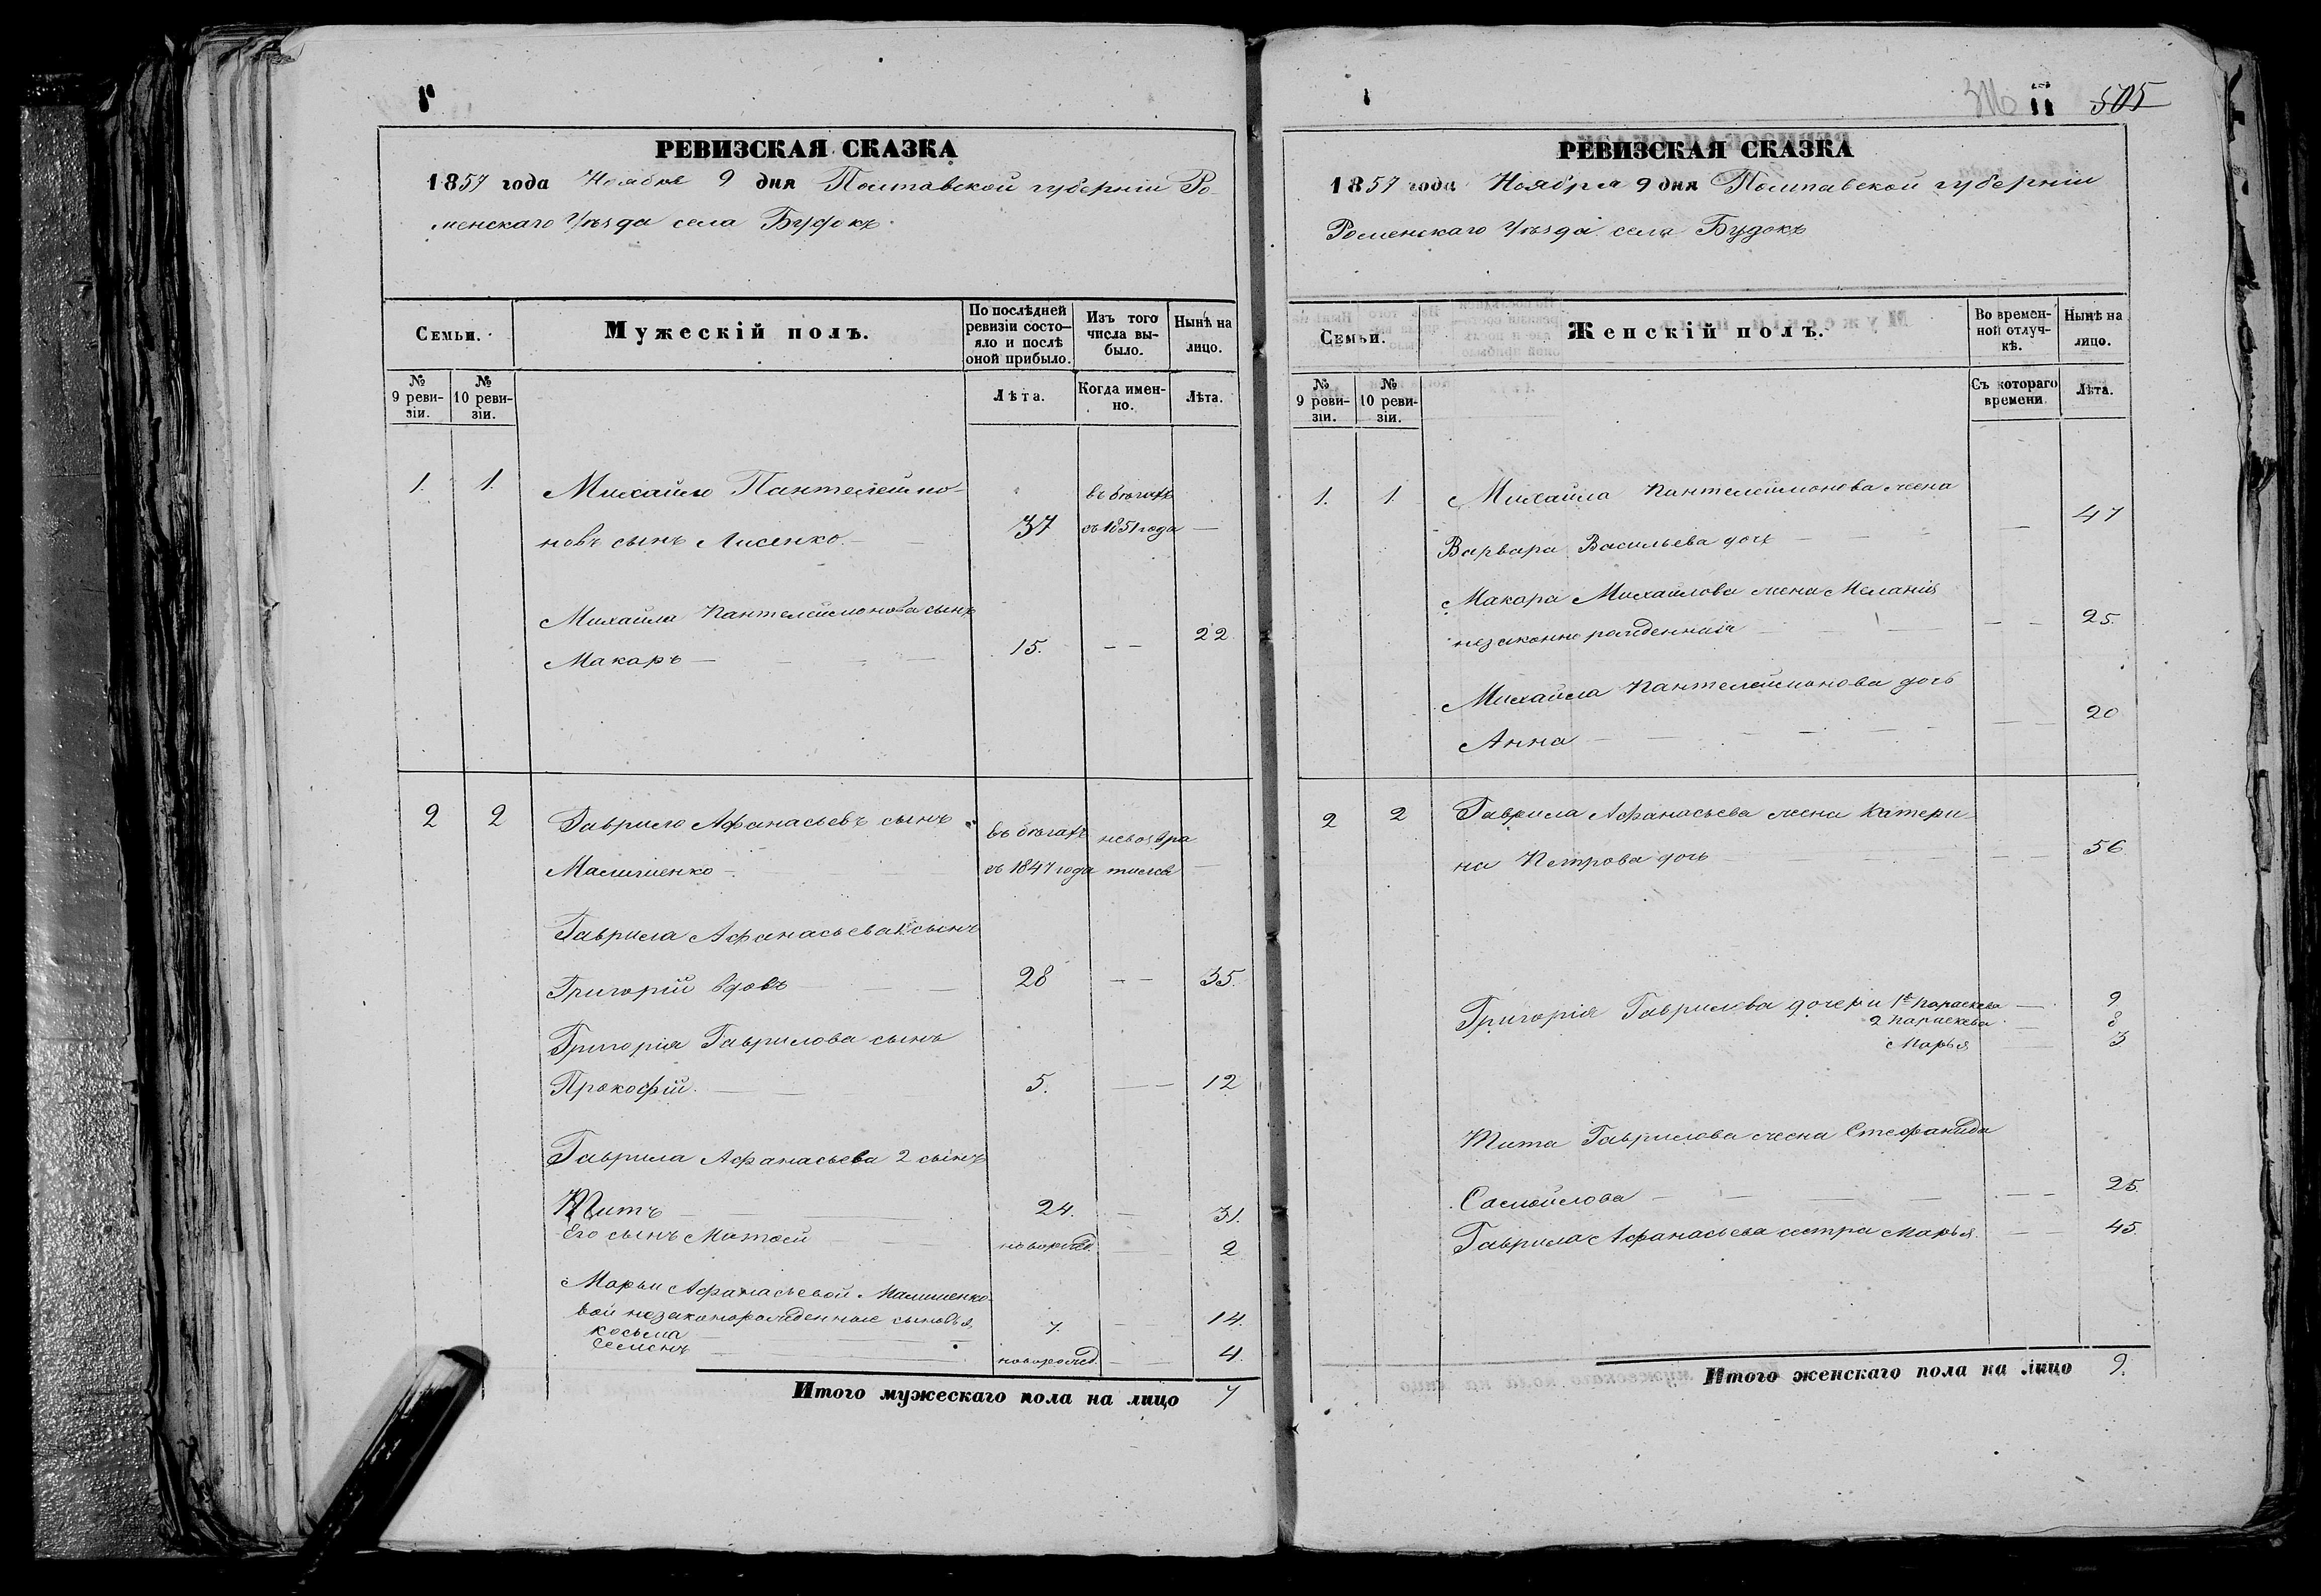 РЕВИЗСКАЯ СКАЗКА
1857 года Ноября 9 дня Полтавской губерніи Ро-
менскаго Уѣзда села Будокъ
Семьи.
Мужескій полъ.
По послѣдней
ревизіи состо-
яло и послѣ
оной прибыло.
Изъ того
числа вы-
было.
Нынѣ на
лицо.
№
9 реви-
зіи.
№
10 реви-
зіи.
Лѣта.
Когда имен-
но.
Лѣта.
1. 1. Михайло Пантелеймо- въ бѣгахъ
новъ сынъ Лисенко 37 съ 1851 года
Михайла Пантелеймонова сынъ
Макаръ 15. 22
2 2 Гаврило Афанасьевъ сынъ въ бѣгахъ невозвра
Малишенко съ 1847 года тился
Гаврила Афанасьева 1 сынъ
Григорій вдовъ 28 35.
Григорія Гаврилова сынъ
Прокофій. 5. 12
Гаврила Афанасьева 2 сынъ
Титъ 24. 31.
Его сынъ Матвей новорожд. 2
Марьи Афанасьевой Малишенко-
вой незаконорожденные сыновья
Косьма 7. 14.
Семенъ новорожд. 4.
Итого мужескаго пола на лицо 7
505
РЕВИЗСКАЯ СКАЗКА
1857 года Ноября 9 дня Полтавской губерніи
Роменскаго Уѣзда села Будокъ
Семьи.
Женскій полъ.
Во времен-
ной отлуч-
кѣ.
Нынѣ на
лицо.
№
9 реви-
зіи.
№
10 реви-
зіи.
Съ котораго
времени
Лѣта.
1. 1 Михайла Пантелеймонова жена
Варвара Васильева дочь 47
Макара Михайлова жена Меланія
незаконно рожденная 25.
Михайла Пантелеймонова дочь
Анна 20
2 2 Гаврила Афанасьева жена Катери-
на Петрова дочь 56
Григорія Гаврилова дочери 1я Параскева 9
2 Параскева 8
Марья 3
Тита Гаврилова жена Стефанида
Самойлова 25.
Гаврила Афанасьева сестра Марья. 45.
Итого женскаго пола на лицо 9.